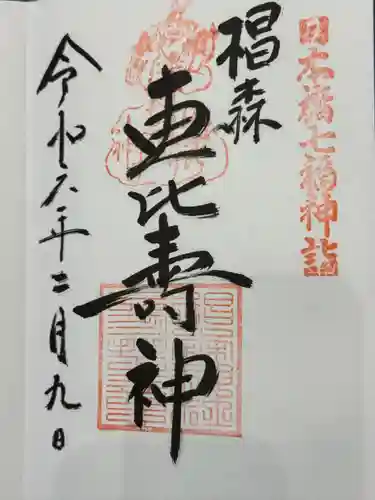 日本橋七福神詣
椙森
恵比寿神
令和六年二月九日